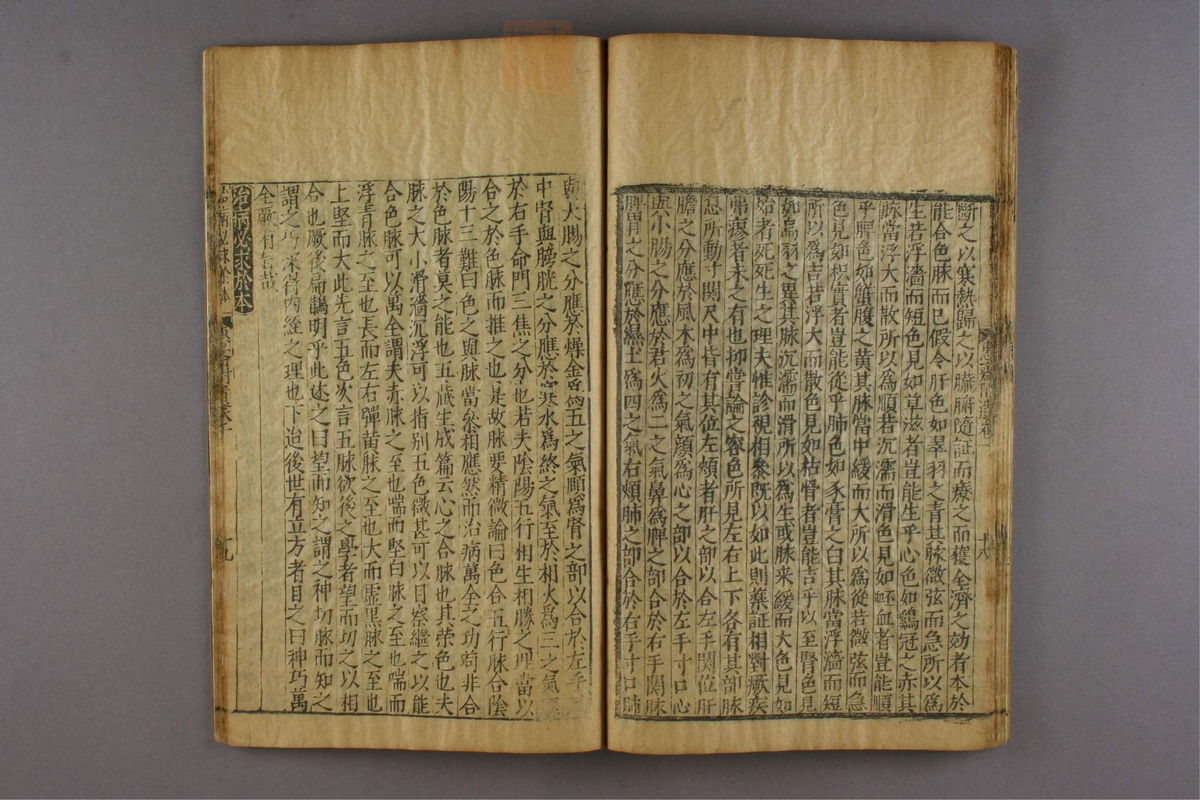 斷之以寒熱歸之以臟腑隨証而療之而獲全濟之効者本於
能合色脉而已假令肝色如翠羽之青其脉微弦而急所以為
生若浮濇而短色見如草滋者豈能生乎心色如鷄冠之赤其
脉當浮大而散所以為順若沉濡而滑色見如衃血者豈能順
乎脾色如蟹腹之黄其脉當中緩而大所以為從若微弦而急
色見如枳實者豈能從乎肺色如豕膏之白其脉當浮濇而短
所以為吉若浮大而散色見如枯骨者豈能吉乎以至腎色見
如烏羽之黑其脉沉濡而滑所以為生或脉来緩而大色見如
炲者死死生之理夫惟診視相参既以如此則藥証相對厥疾
弗瘳者未之有也抑嘗論之容色所見左右上下各有其部脉
息所動寸関尺中皆有其位左頰者肝之部以合左手関位肝
膽之分應於風木為初之氣顔為心之部以合於左手寸口心
與小腸之分應於君火為二之氣鼻為脾之部合於右手関脉
脾胃之分應於濕土為四之氣右頰肺之部合於右手寸口肺
與大腸之分應於燥金為五之氣頤為腎之部以合於左手
中腎與膀胱之分應於寒水為終之氣至於相火為三之氣
於右手命門三焦之分也若夫陰陽五行相生相勝之理當以
合之於色脉而推之也是故脉要精微論曰色合五行脉合陰
陽十三難曰色之與脉當参相應然而治病萬全之功苟非合
於色脉者莫之能也五藏生成篇云心之合脉也其榮色也夫
脉之大小滑濇沉浮可以指別五色微甚可以目察繼之以能
合色脉可以萬全謂夫赤脉之至也喘而堅白脉之至也喘而
浮青脉之至也長而左右彈黄脉之至也大而虚黑脉之至也
上堅而大此先言五色次言五脉欲後之學者望而切之以相
合也厥後扁鵲明乎此述之曰望而知之謂之神切脉而知之
謂之巧深得内經之理也下迨後世有立方者目之曰神巧萬
全厥有旨哉
治病必求於本
治病必求於本
十八
十九